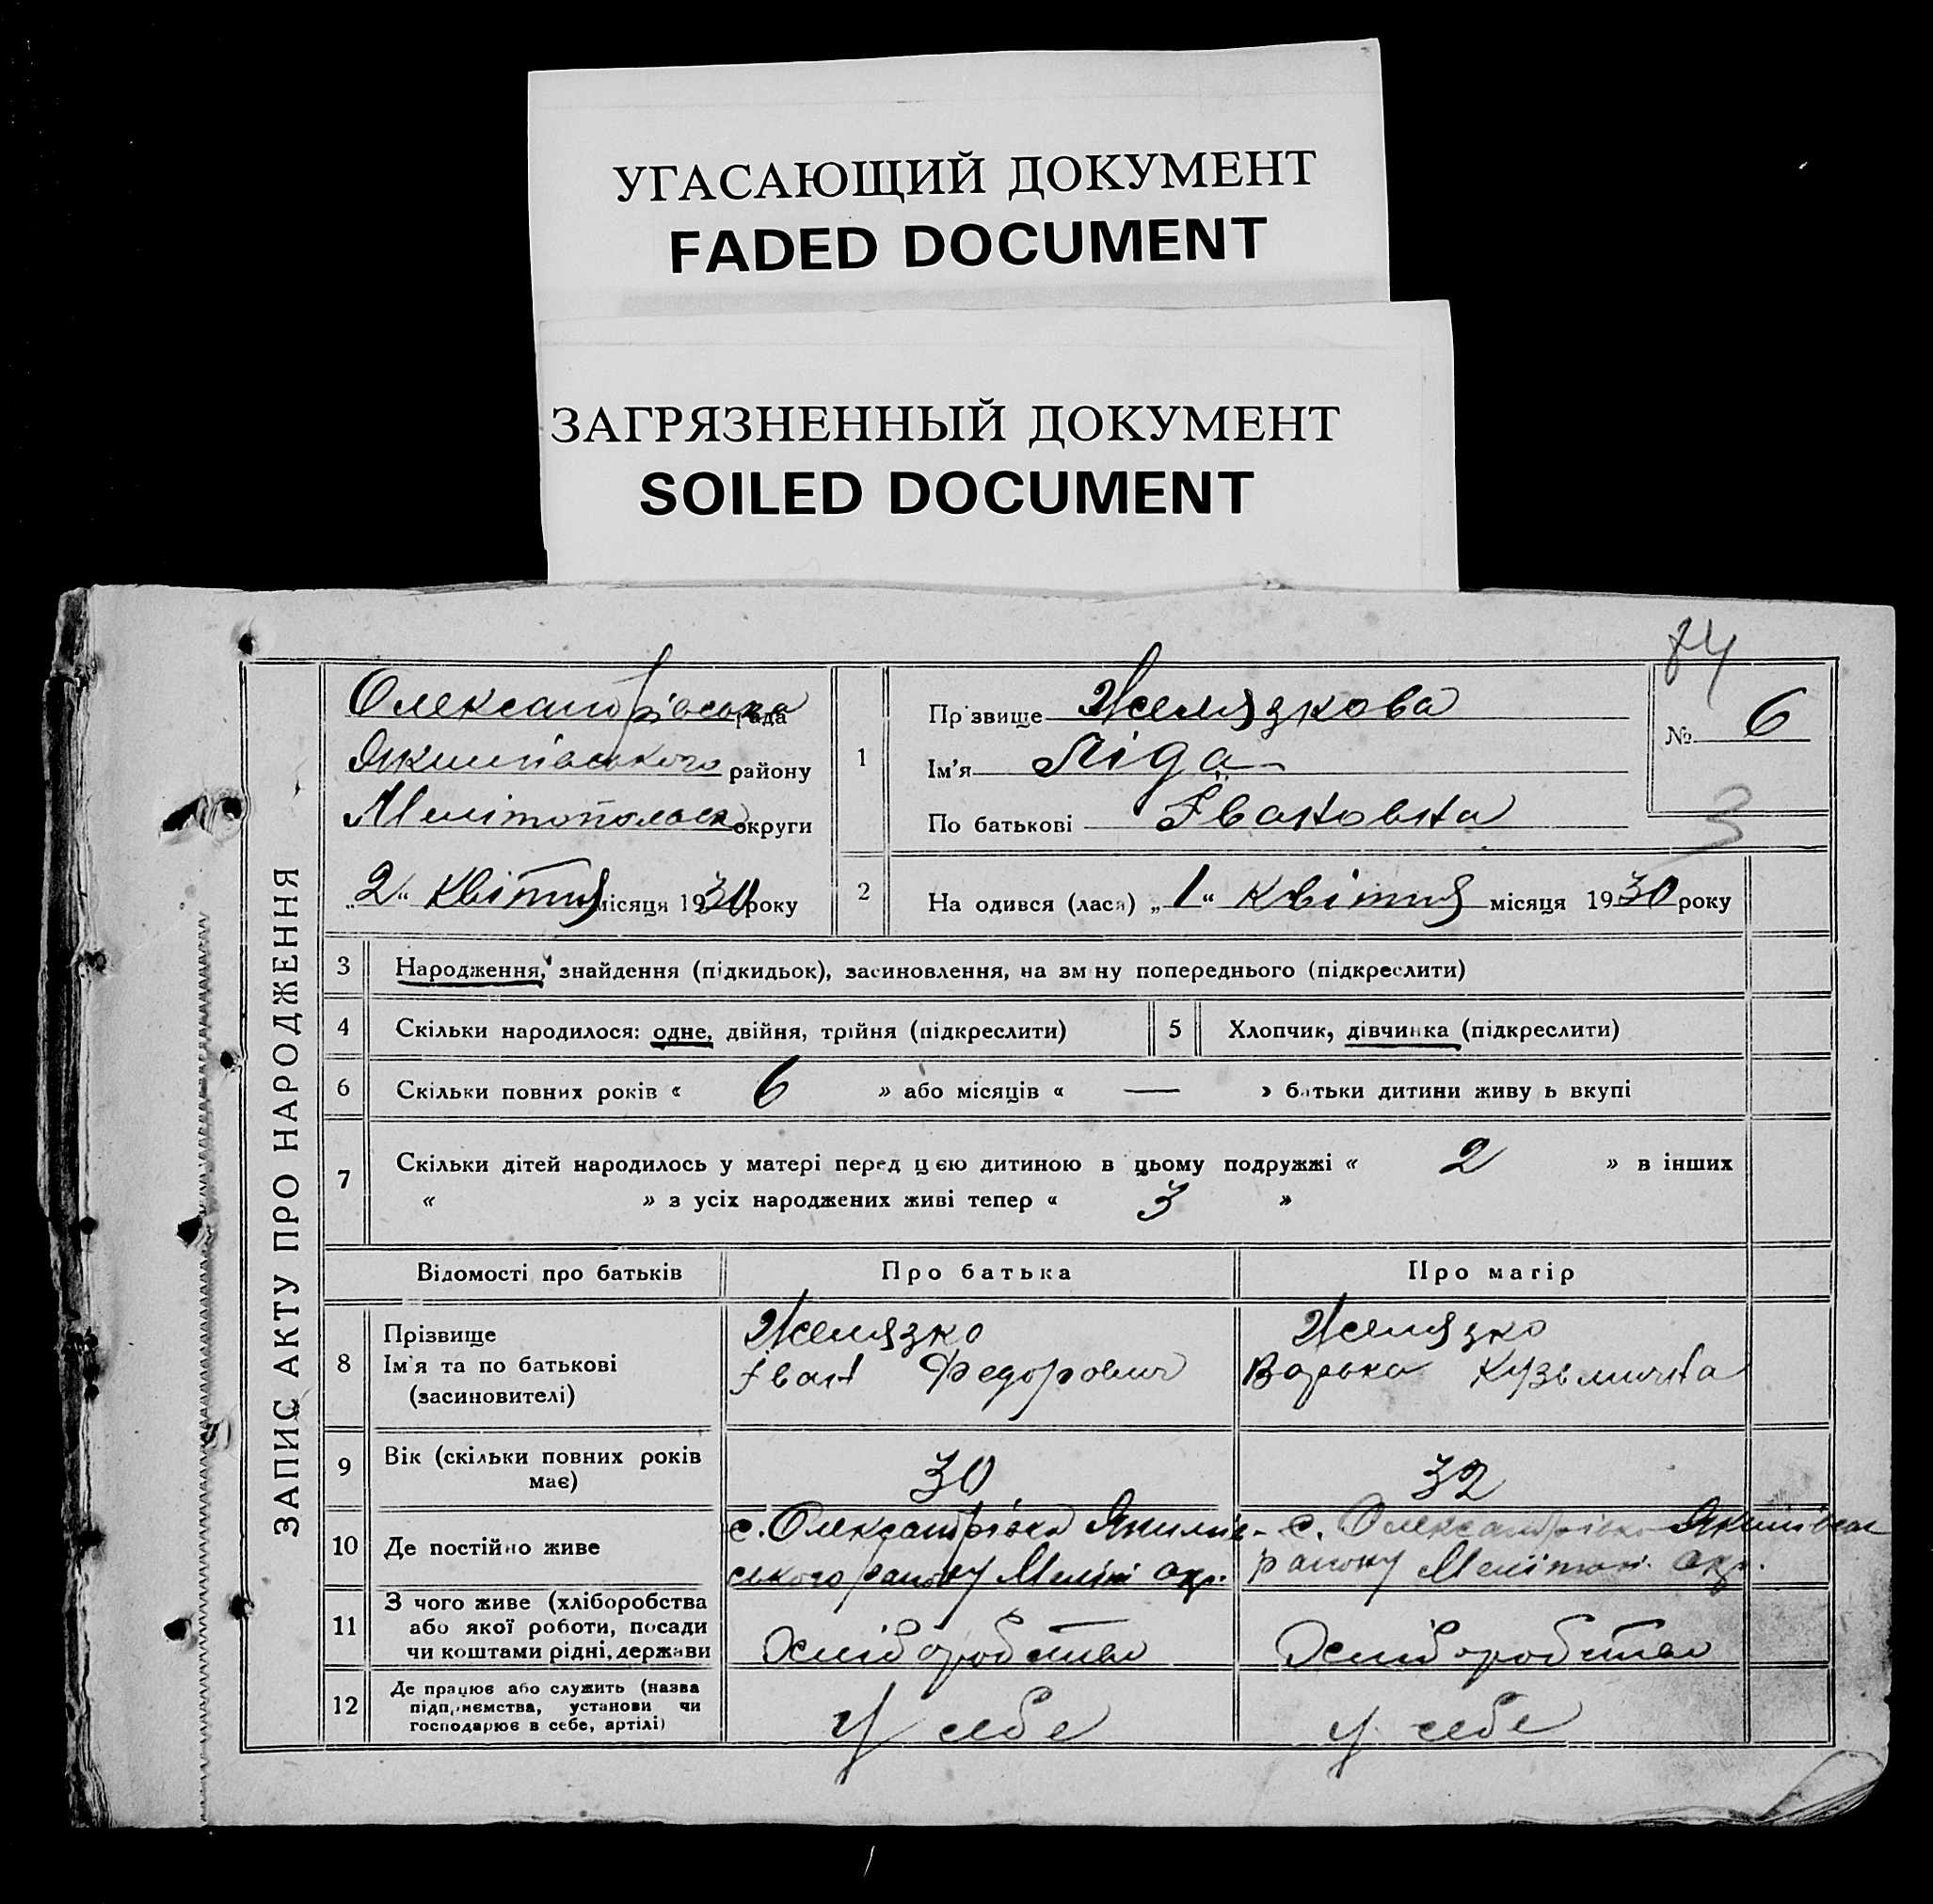 УГАСАЮЩИЙ ДОКУМЕНТ
FADED DOCUMENT
ЗАГРЯЗНЕННЫЙ ДОКУМЕНТ
SOILED DOCUMENT
84
ЗАПИС АКТУ ПРО НАРОДЖЕННЯ
Олександрівська рада
Якимівського району
Мелітопольск округи
„2“ Квітня місяця 1930 року
1
Пр звище Желязкова
Ім'я Ліда
По батькові Івановна
№ 6
3
2
На одився (лася) „1“ Квітня місяця 1930 року
3 Народження, знайдення (підкидьок), засиновлення, на зм ну попереднього (підкреслити)
4 Скільки народилося: одне, двійня, трійня (підкреслити)
5 Хлопчик, дівчинка (підкреслити)
6 Скільки повних років « 6 » або місяців « — » батьки дитини живу ь вкупі
7 Скільки дітей народилось у матері перед цією дитиною в цьому подружжі « 2 » в інших
« » з усіх народжених живі тепер « 3 »
Відомості про батьків
Про батька
Про матір
8 Прізвище
Ім'я та по батькові
(засиновителі)
Желязко
Іван Федорович
Желязко
Варька Кузьминна
9 Вік (скільки повних років
має)
30
32
10 Де постійно живе
с. Олександрівка Якимів-
ського району Меліт окр.
с. Олександрівка Якимівськ
району Мелітоп. окр.
11 З чого живе (хліборобства
або якої роботи, посади
чи коштами рідні, держави
Хліборобство
Хліборобство
12 Де працює або служить (назва
підприємства, установи чи
господарює в себе, артілі)
У себе
У себе